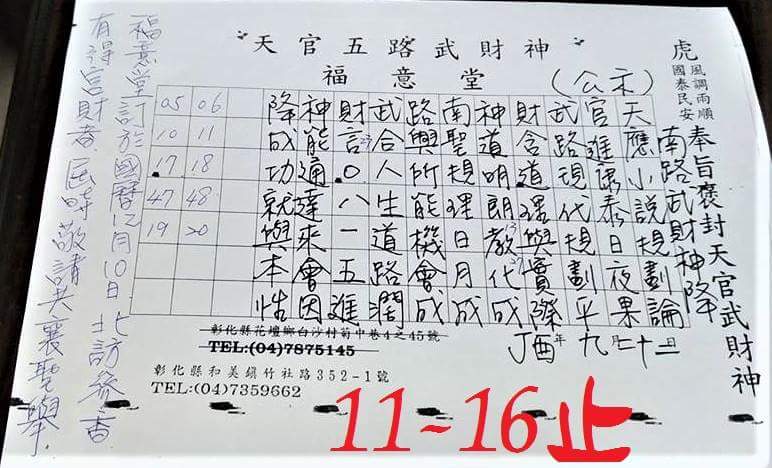 天官五路武財神
福意堂
(公示)
虎
風調雨順
國泰民安
奉旨褒封天官武財神
南路武財神降
天應小說規劃論
官進康泰日夜果
武路現代規劃平
財含道理與實際
神道明朗教化成
南聖規理日月成
路與所能機會成
武合人生道路潤
財言0八一五進
神能通達來會因
降成功就與本性
06 11 18 48 20
05 10 17 47 19
丁酉年九月二十二日
彰化縣花壇鄉白沙村菊中巷4之45號
TEL:(04)7875145
彰化縣和美鎮竹社路352-1號
TEL:(04)7359662
福意堂訂於國曆12月10日北訪參香
有得官財者屆時敬請共襄聖舉.
11~16止